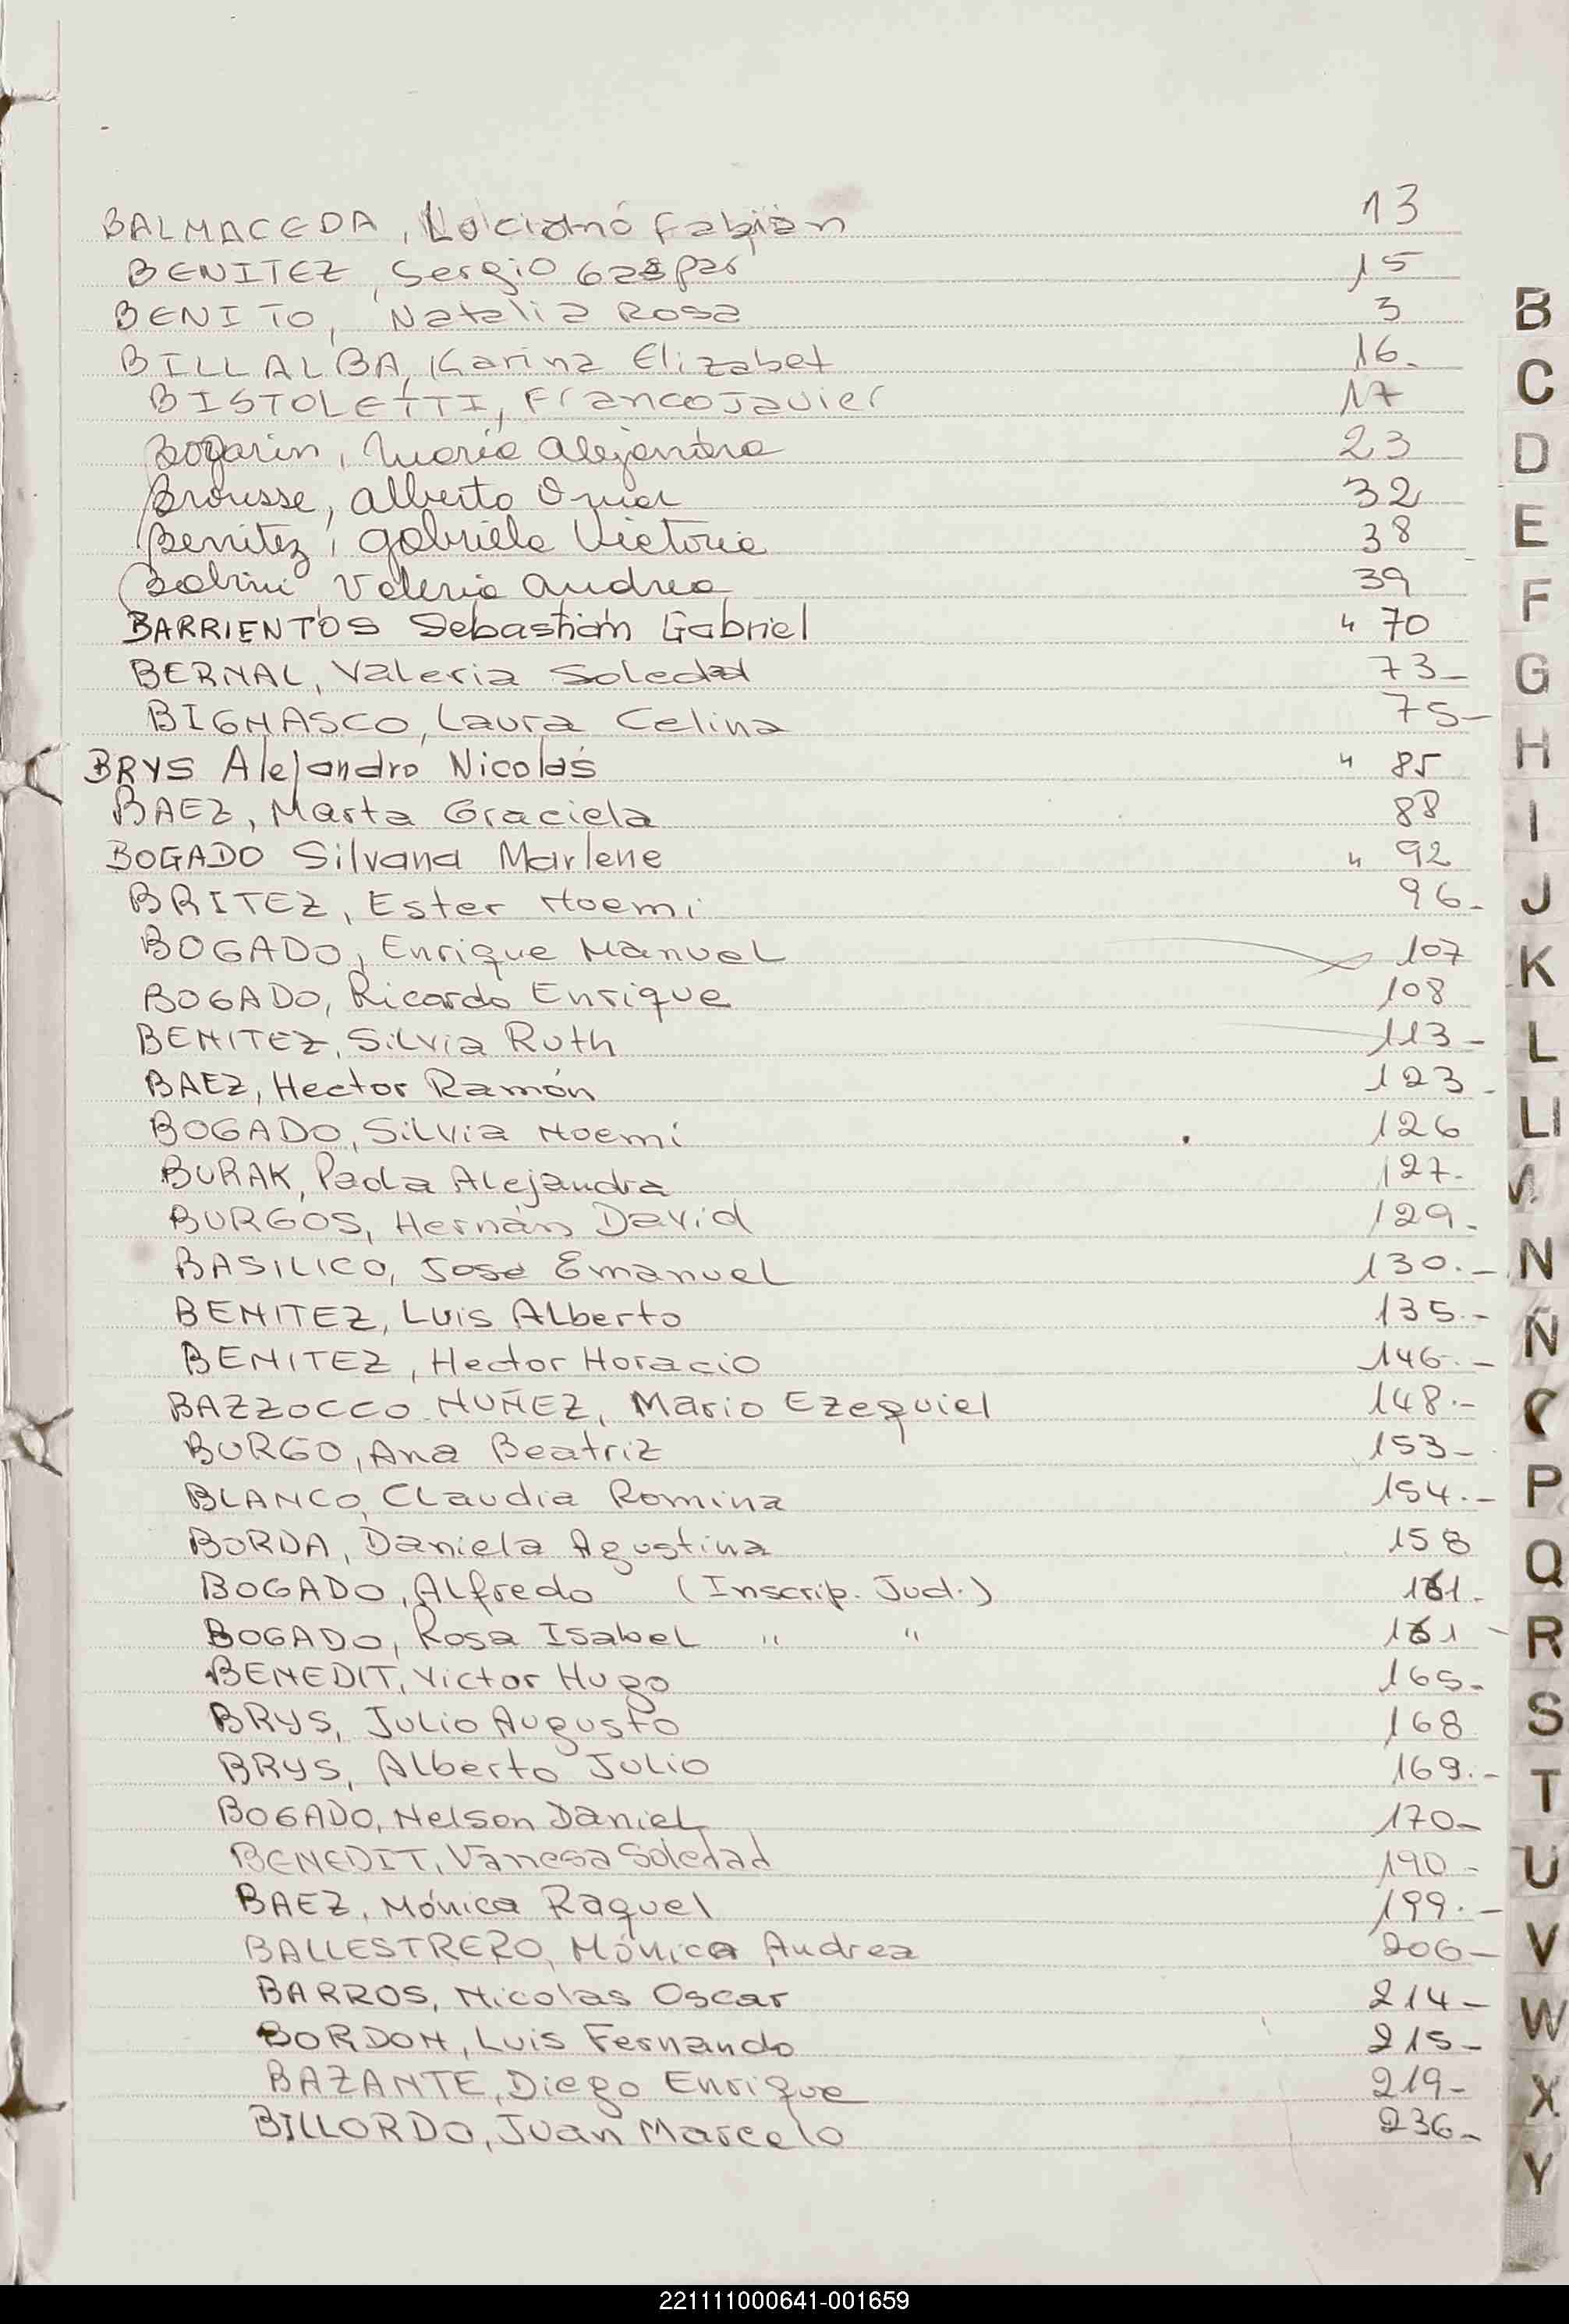 BALMACEDA, Luciano Fabián 13
BENITEZ, Sergio Gaspar 15
BENITO, Natalia Rosa 3
BILLALBA, Karina Elizabet 16-
BISTOLETTI, Franco Javier 17
Bogarin, María Alejandra 23
Brousse, Alberto Omar 32
Benitez, Gabriela Victoria 38
Valeria Andrea 39
BARRIENTOS Sebastián Gabriel " 70
BERNAL, Valeria Soledad 73-
BIGNASCO, Laura Celina 75-
BRYS Alejandro Nicolás " 85
BAEZ, Marta Graciela 88
BOGADO Silvana Marlene " 92
BRITEZ, Ester Noemi 96-
BOGADO, Enrique Manuel 107
BOGADO, Ricardo Enrique 108
BENITEZ, Silvia Ruth 113-
BAEZ, Hector Ramón 123-
BOGADO, Silvia Noemí 126
BURAK, Paola Alejandra 127-
BURGOS, Hernán David 129-
BASILICO, José Emanuel 130.-
BENITEZ, Luis Alberto 135.-
BENITEZ, Hector Horacio 146.-
BAZZOCCO NUÑEZ, Mario Ezequiel 148.-
BURGO, Ana Beatriz 153-
BLANCO, Claudia Romina 154.-
BORDA, Daniela Agustina 158
BOGADO, Alfredo (Inscrip. Jud.) 161-
BOGADO, Rosa Isabel " " 161-
BENEDIT, Victor Hugo 165-
BRYS, Julio Augusto 168
BRYS, Alberto Julio 169.-
BOGADO, Nelson Daniel 170-
BENEDIT, Vanesa Soledad 190-
BAEZ, Mónica Raquel 199.-
BALLESTRERO, Mónica Andrea 206-
BARROS, Nicolas Oscar 214-
BORDON, Luis Fernando 215-
BAZANTE, Diego Enrique 219-
BILLORDO, Juan Marcelo 236-
B
C
D
E
F
G
H
I
J
K
L
Ll
N
Ñ
P
Q
R
S
T
U
V
W
X
Y
221111000641-001659